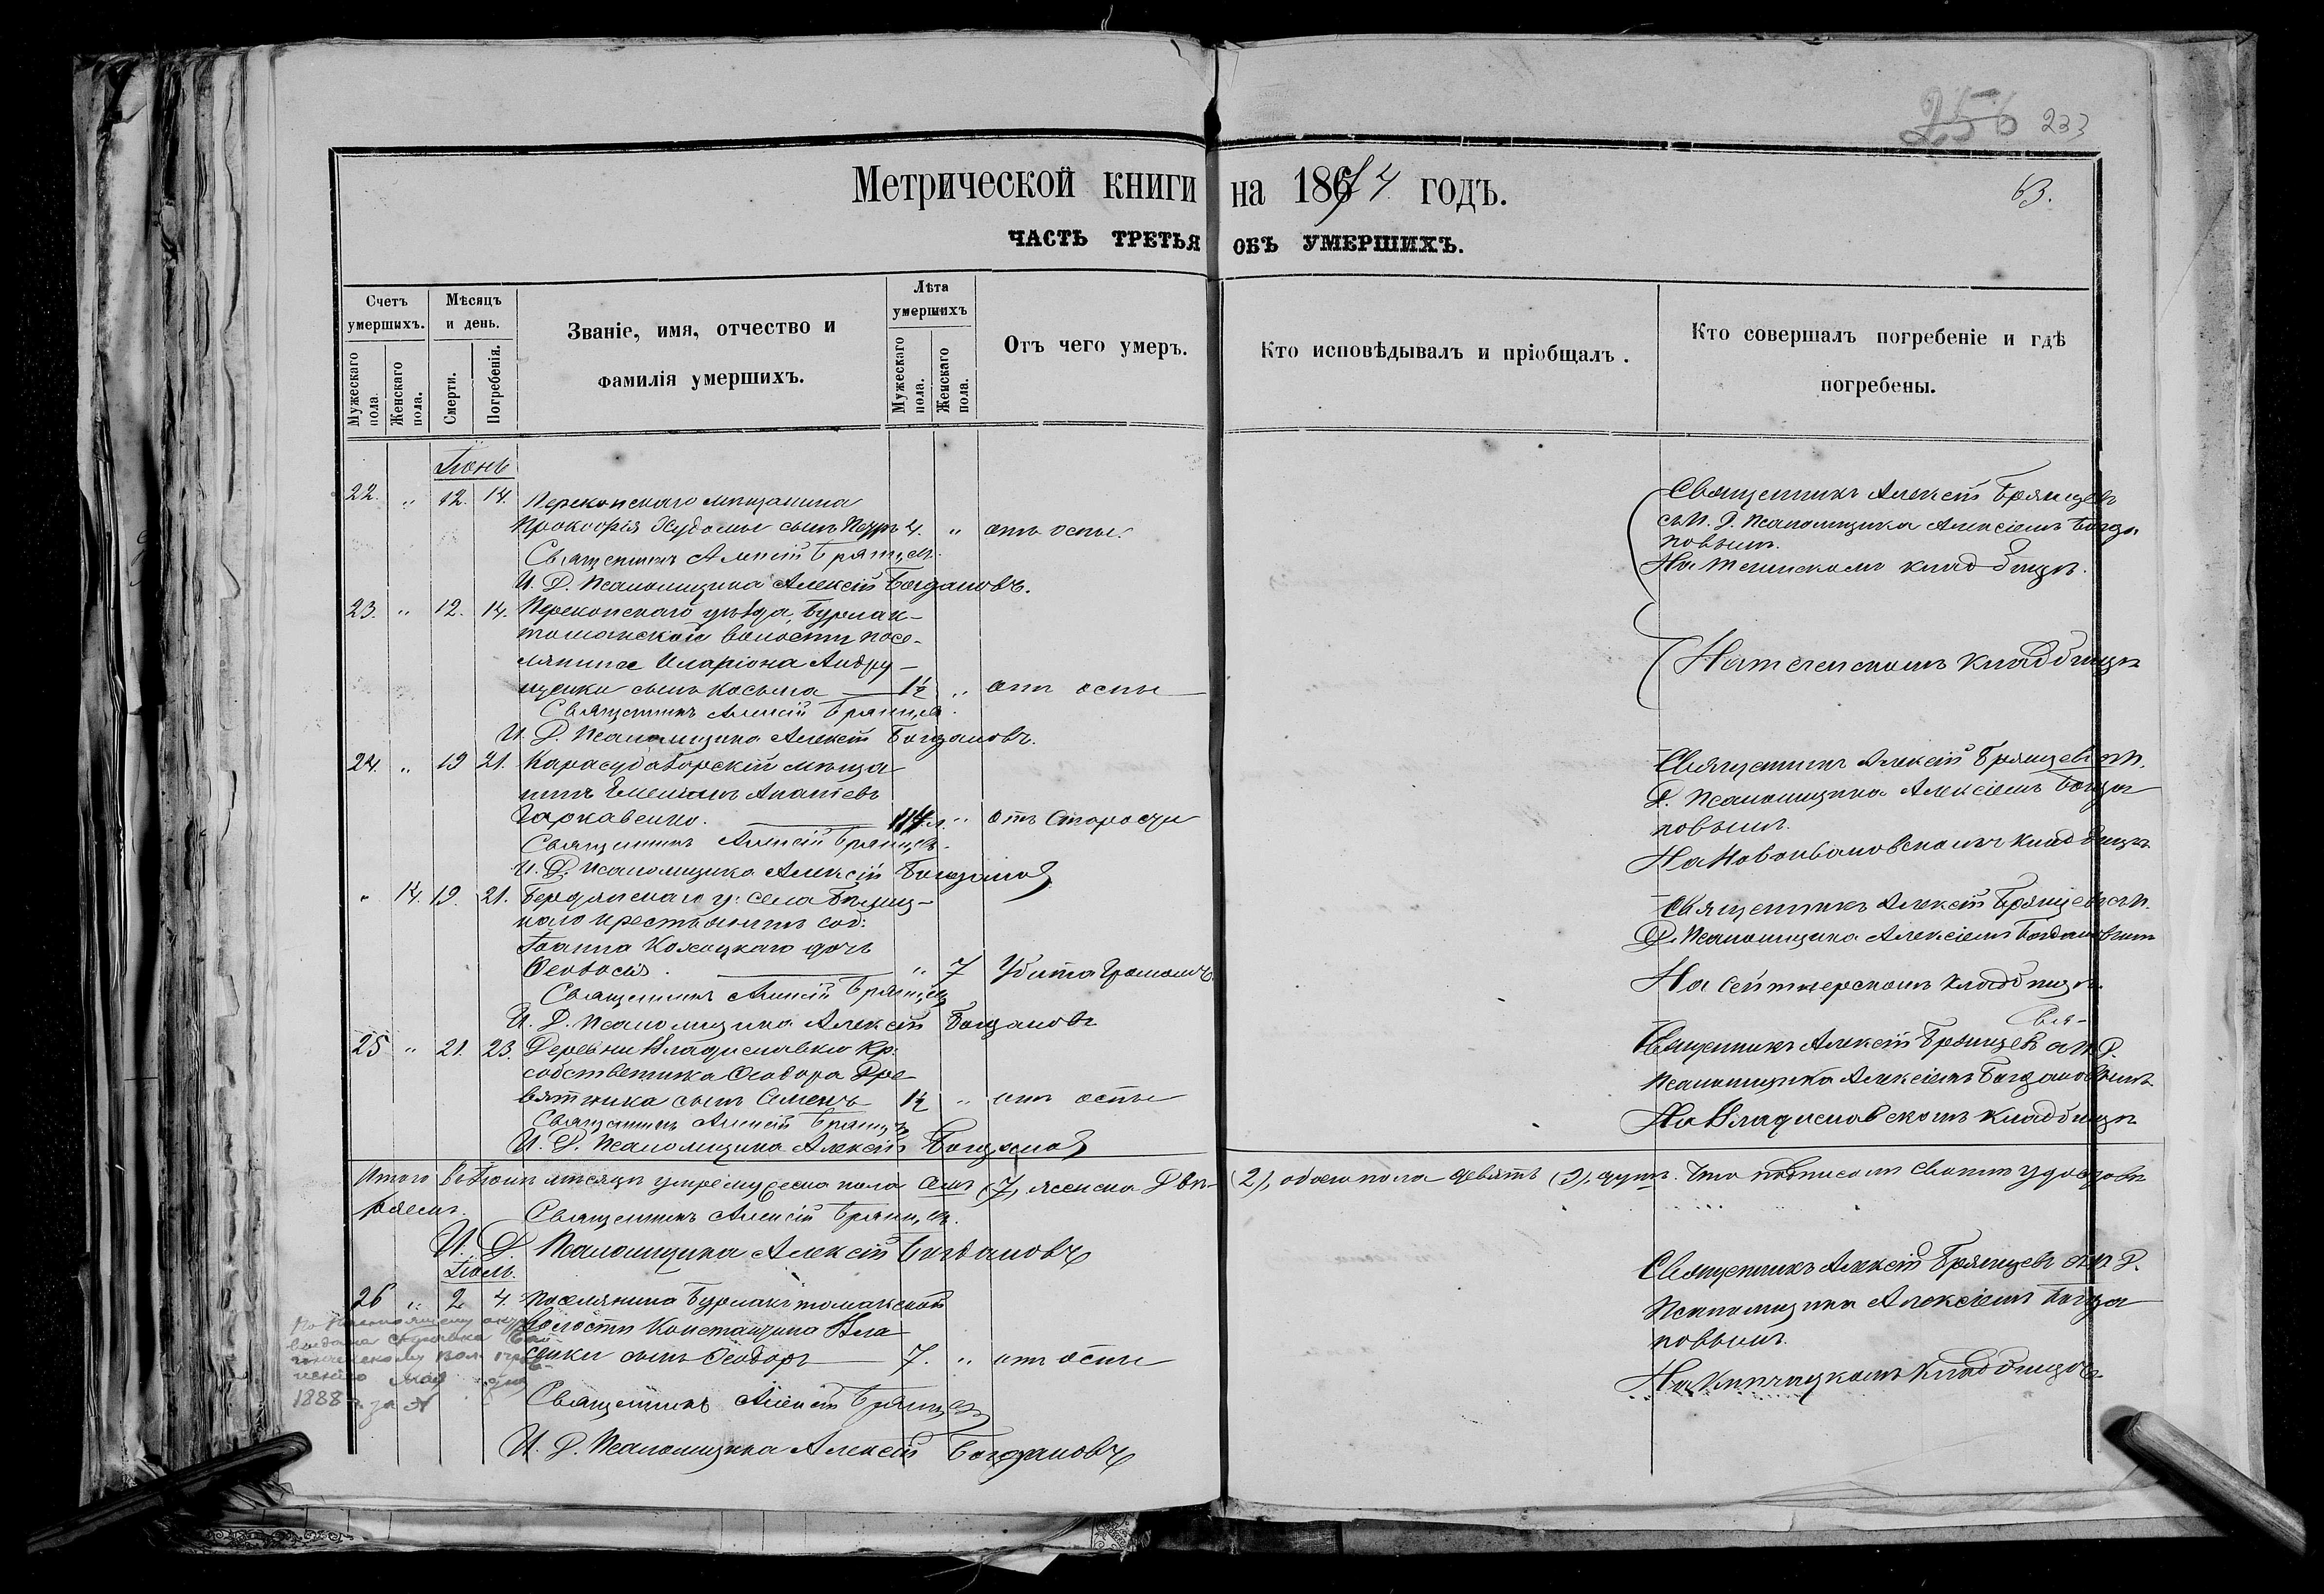 256 233
Метрической книги на 1874 годъ.
63.
ЧАСТЬ ТРЕТЬЯ ОБЪ УМЕРШИХЪ.
Счетъ умершихъ.
Мужескаго пола.
Женскаго пола.
Мѣсяцъ и день.
Смерти.
Погребенія.
Званіе, имя, отчество и
фамилія умершихъ.
Лѣта умершихъ
Мужескаго пола.
Женскаго пола.
Отъ чего умеръ.
Кто исповѣдывалъ и пріобщалъ.
Кто совершалъ погребеніе и гдѣ
погребены.
Іюнь
22. " 12. 14. Перекопскаго мѣщанина
Прокофія сынъ Петръ 4. " отъ оспы.
Священникъ Алексій Брянцевъ.
И. Д. Псаломщика Алексій Богдановъ.
Священникъ Алексій Брянцевъ
съ И. Д. Псаломщика Алексіемъ Богда
новымъ.
На кладбищѣ.
23. " 12. 14. Перекопскаго уѣзда, Бурлак-
томакской волости посе-
лянина Иларіона Андру-
щенки сынъ Косьма 1½ " отъ оспы
Священникъ Алексій Брянцевъ.
И. Д. Псаломщика Алексій Богдановъ.
кладбищѣ
24. " 19 21. Карасубазарскій мѣща
нинъ Емеліанъ
Гаркавенко. " отъ старости
Священникъ Алексій Брянцевъ.
И. Д. Псаломщика Алексій Богдановъ
Священникъ Алексій Брянцевъ съ И.
Д. Псаломщика Алексіемъ Богда
новымъ.
На Новоивановскомъ кладбищѣ
" 14. 19. 21. Бердянскаго у: села
крестьянинъ соб:
Іоанна дочь
Ѳеодосія. " 7 Убита громомъ.
Священникъ Алексій Брянцевъ
И. Д. Псаломщика Алексій Богдановъ
Священникъ Алексій Брянцевъ съ И.
Д. Псаломщика Алексіемъ Богдановымъ
На кладбищѣ.
25 " 21. 23. Деревни Владиславки кр:
собственника Ѳеодора Дре-
вятника сынъ Симеонъ 1½ " отъ оспы
Священникъ Алексій Брянцевъ
И. Д. Псаломщика Алексій Богдановъ
Свя-
щенникъ Алексій Брянцевъ съ И. Д.
Псаломщика Алексіемъ Богдановымъ
На Владиславскомъ кладбищѣ
Итого въ Іюнѣ мѣсяцѣ умре мужеска пола семь (7), женска двѣ (2), обоего пола девять (9), душъ. Что подписомъ своимъ удостовѣ
ряемъ.
Священникъ Алексій Брянцевъ.
И. Д. Псаломщика Алексій Богдановъ
Іюль.
26 " 2 4. Поселянина Бурлактомакской
волости Константина Вла
сенки сынъ Ѳеодоръ 7. " отъ оспы
Священникъ Алексій Брянцевъ
И. Д. Псаломщика Алексій Богдановъ
Священникъ Алексій Брянцевъ съ И. Д.
Псаломщика Алексіемъ Богда
новымъ.
На кладбищѣ
1888 г. за №